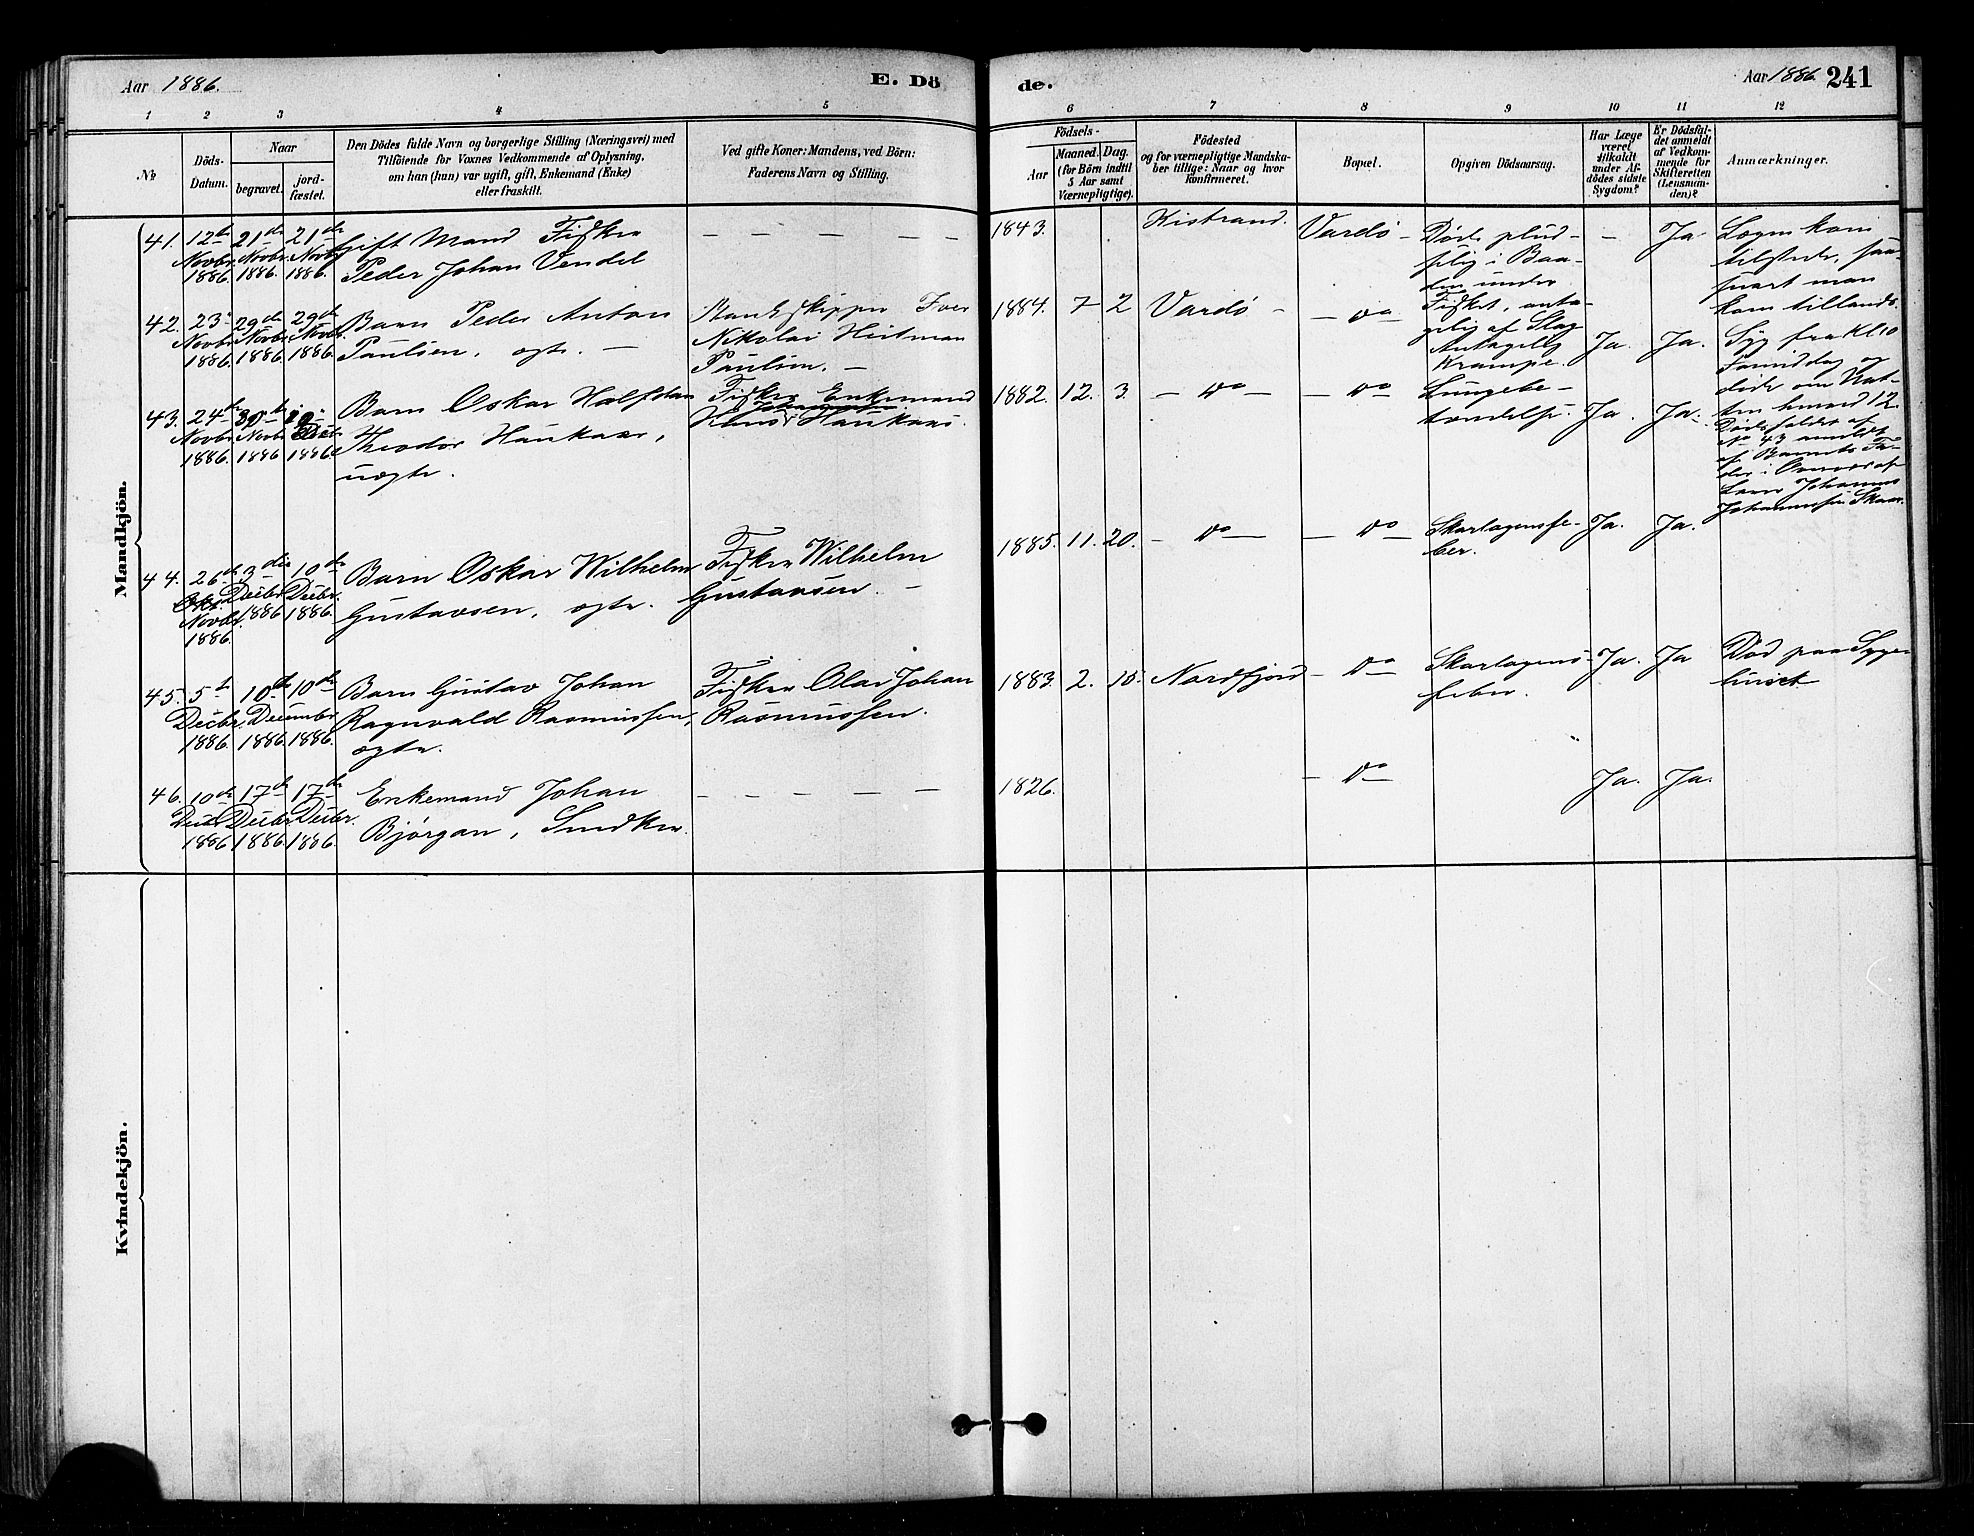 Aar 1886.
E. Dö
de.
Aar 1886. 241
1 2 3 4 5 6 7 8 9 10 11 12
No
Döds-
Datum.
Naar
begravet.
jord-
fæstet.
Den Dödes fulde Navn og borgerlige Stilling (Næringsvei) med
Tilföiende for Voxnes Vedkommende af Oplysning,
om han (hun) var ugift, gift, Enkemand (Enke)
eller fraskilt.
Ved gifte Koner: Mandens, ved Börn:
Faderens Navn og Stilling.
Födsels-
Aar
Maaned. Dag.
(for Börn indtil
5 Aar samt
Værnepligtige).
Födested
og for værnepligtige Mandska-
ber tillige: Naar og hvor
konfirmeret.
Bopæl.
Opgiven Dödsaarsag.
Har Læge
været
tilkaldt
under Af-
dödes sidste
Sygdom?
Er Dödsfal-
det anmeldt
af Vedkom-
mende for
Skifteretten
(Lensman-
den)?
Anmærkninger.
Mandkjön.
41.
12te
Novbr.
1886.
21de
Novbr.
1886.
21de
Novbr.
1886.
Gift Mand Fisker
Peder Johan Vendel
— — — — —
1843.
Kistrand.
Vardö -
Døde plud-
selig i Baa-
den under
Fisket, anta-
gelig af Slag
—
Ja
Lægen kom
tilstede, saa-
snart man
kom tillands.
42.
23
Novbr.
1886.
29de
Novbr.
1886.
29de
Novbr.
1886.
Barn Peder Anton
Paulsen, ægte. —
Iver
Nikolai
Paulsen. —
1884. 7 2
Vardö -
— Do
Antagelig
Krampe.
Ja. Ja.
Syg fra Kl 10
Formiddag og
døde om Nat-
ten henved 12.
43.
24de
Novbr.
1886.
30te
Novbr.
1886
10
Decbr.
1886.
Barn Oskar Halfdan
Theodor Haukaas,
uægte.
Fisker Enkemand
Haukaas.
1882. 12. 3.
— Do —
— Do
Lungebe-
tændelse.
Ja. Ja.
Dødsfaldet af
No 43 anmeldt
af Barnets Fa-
der i Overvær af
Johannes
Johannessen
44.
26de
Novbr.
1886.
3die
Decbr.
1886
10de
Decbr.
1886.
Barn Oskar Wilhelm
Gustavsen, ægte.
Fisker Wilhelm
Gustavsen. —
1885. 11. 20.
— Do —
— Do —
Skarlagensfe-
ber.
Ja. Ja.
45.
5te
Decbr.
1886.
10de
December
1886.
10de
1886.
Barn Gustav Johan
Ragnvald Rasmussen,
ægte.
Fisker Olai Johan
Rasmussen.
1883. 2. 10.
Nordfjord
— Do —
Skarlagens-
feber.
Ja. Ja
Död paa Syge-
huset
46.
10de
Decbr.
1886
17de
Decbr.
1886.
17de
Decbr.
1886.
Enkemand Johan
Bjørgan, Snedker.
— — — — —
1826.
— Do —
Ja. Ja.
Kvindekjön.